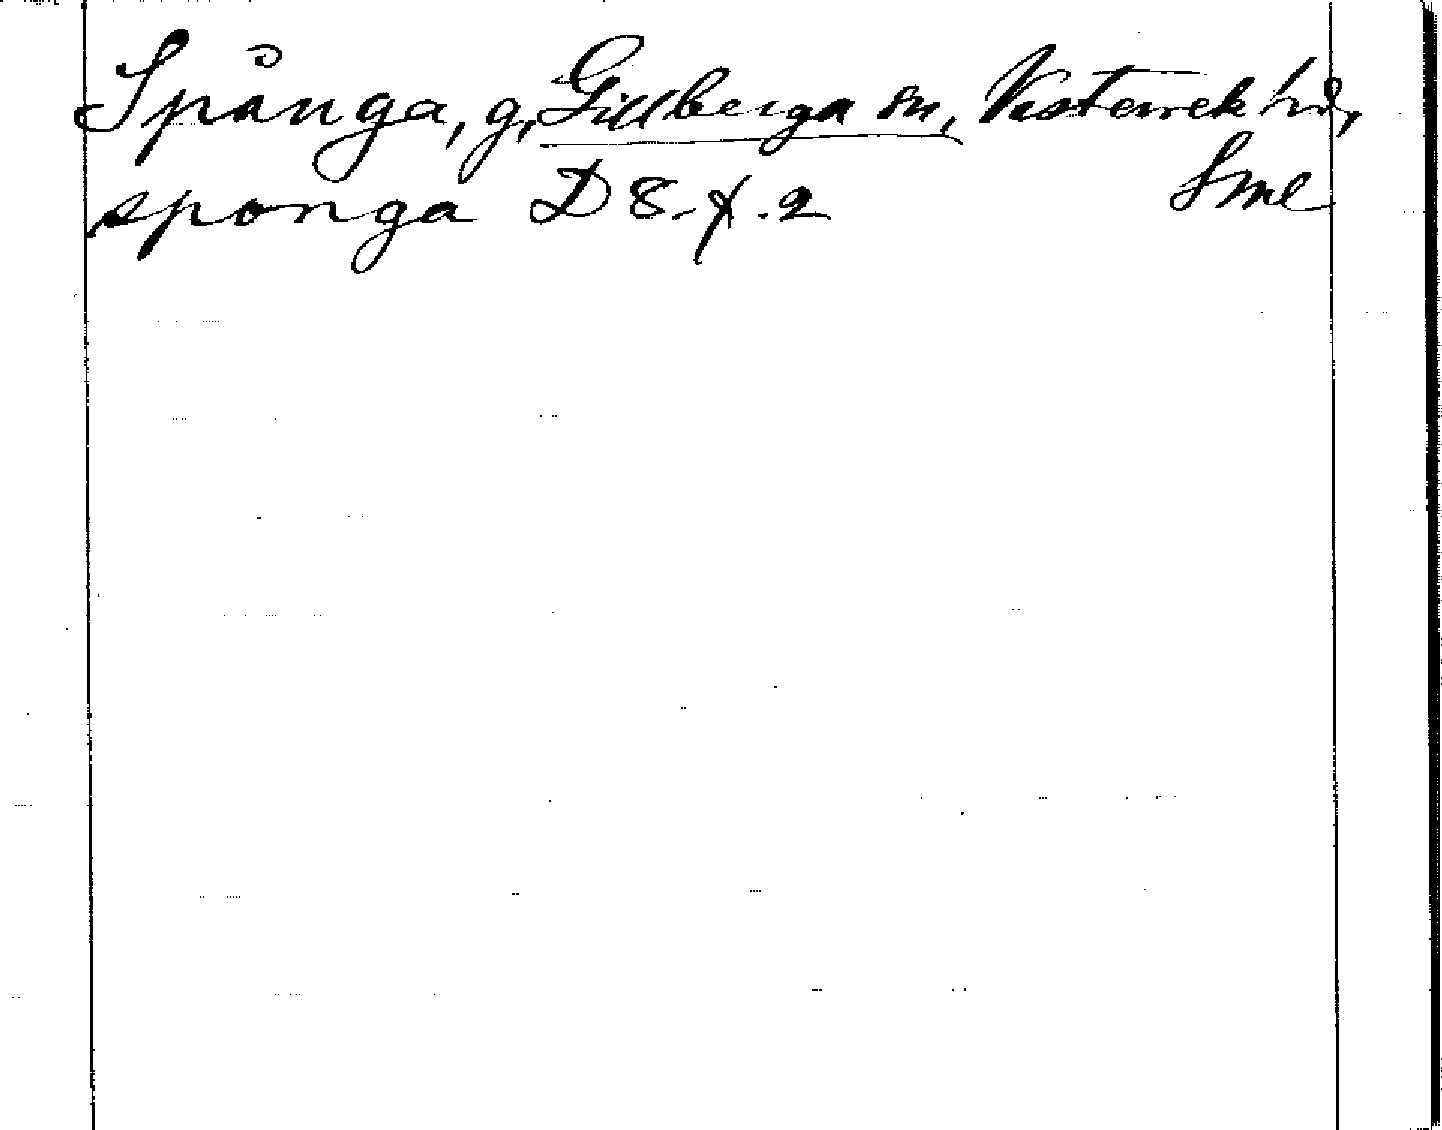 Spånga, g, Gillberga sn, Västerrek hd,
sponga D 8. f. 2 Sml